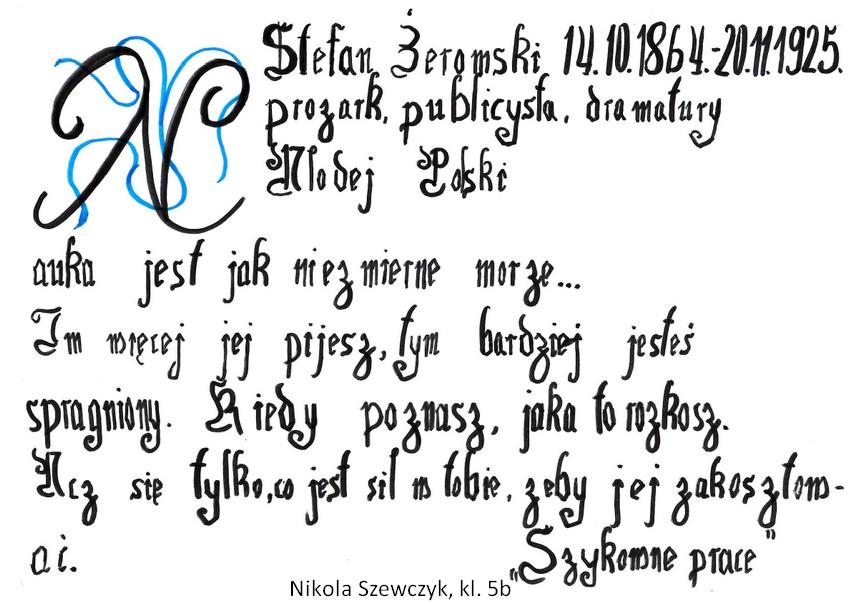 Stefan Żeromski 14.10.1864.-20.11.1925.
prozark, publicysta, dramatury
Młodej Polski
N
auka jest jak niezmierne morze...
Im więcej jej pijesz, tym bardziej jesteś
spragniony. Kiedy poznasz, jaka to rozkosz.
Ucz się tylko, co jest sił w tobie, żeby jej zakosztow-
ać.
„Szykowne prace"
Nikola Szewczyk, kl. 5b